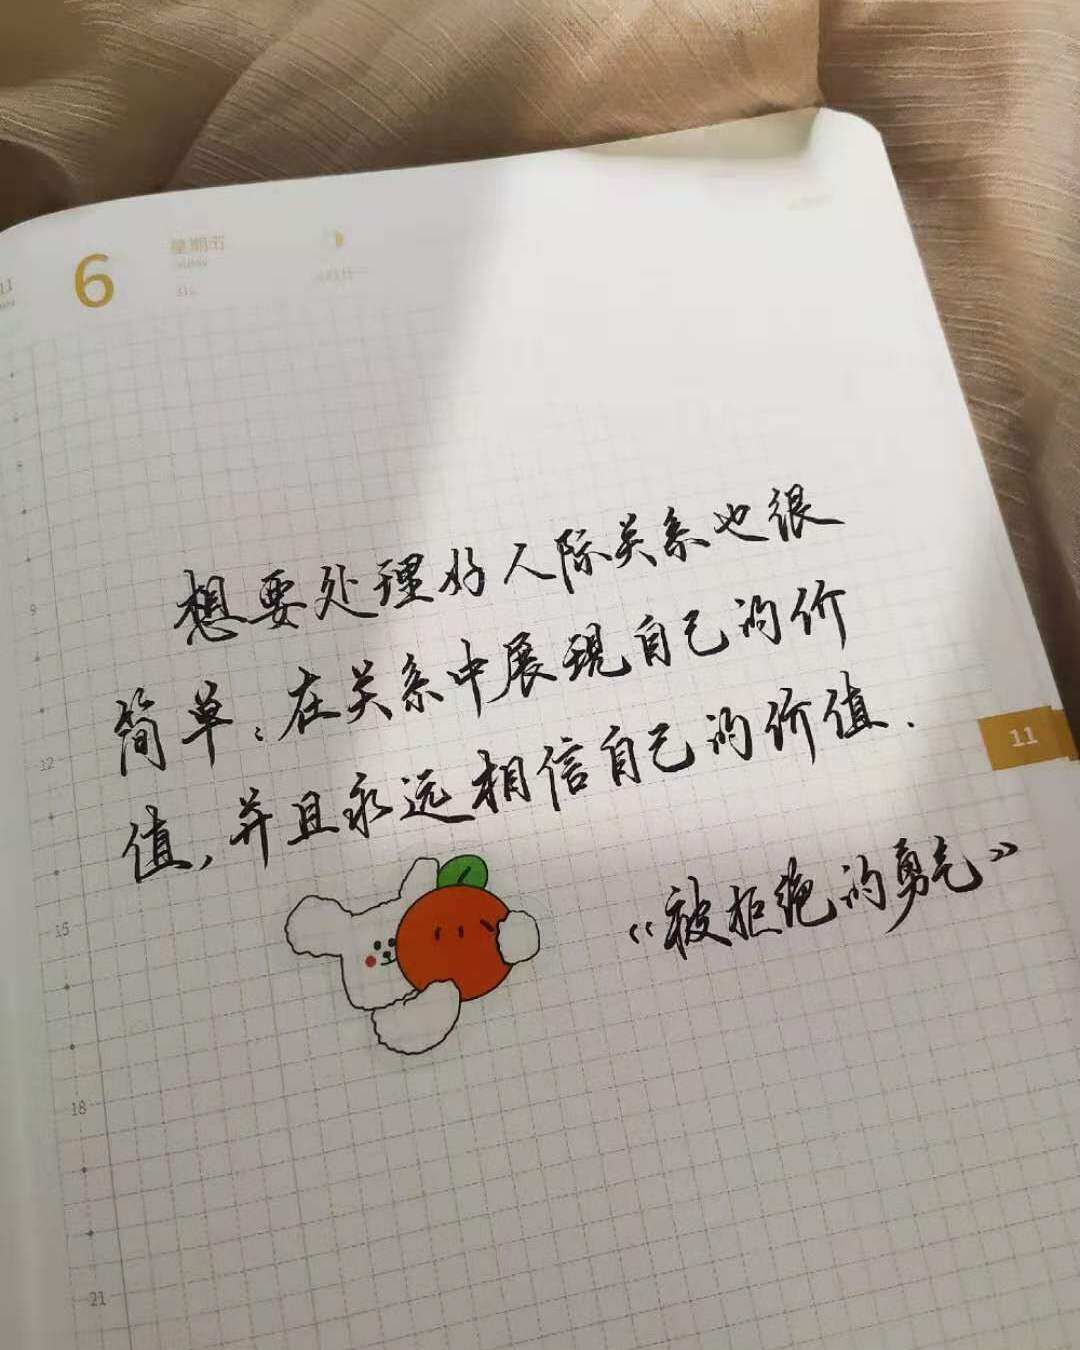 11
6
星期五
想要处理好人际关系也很
简单:在关系中展现自己的价
值,并且永远相信自己的价值.
《被拒绝的勇气》
11
9
12
15
18
21